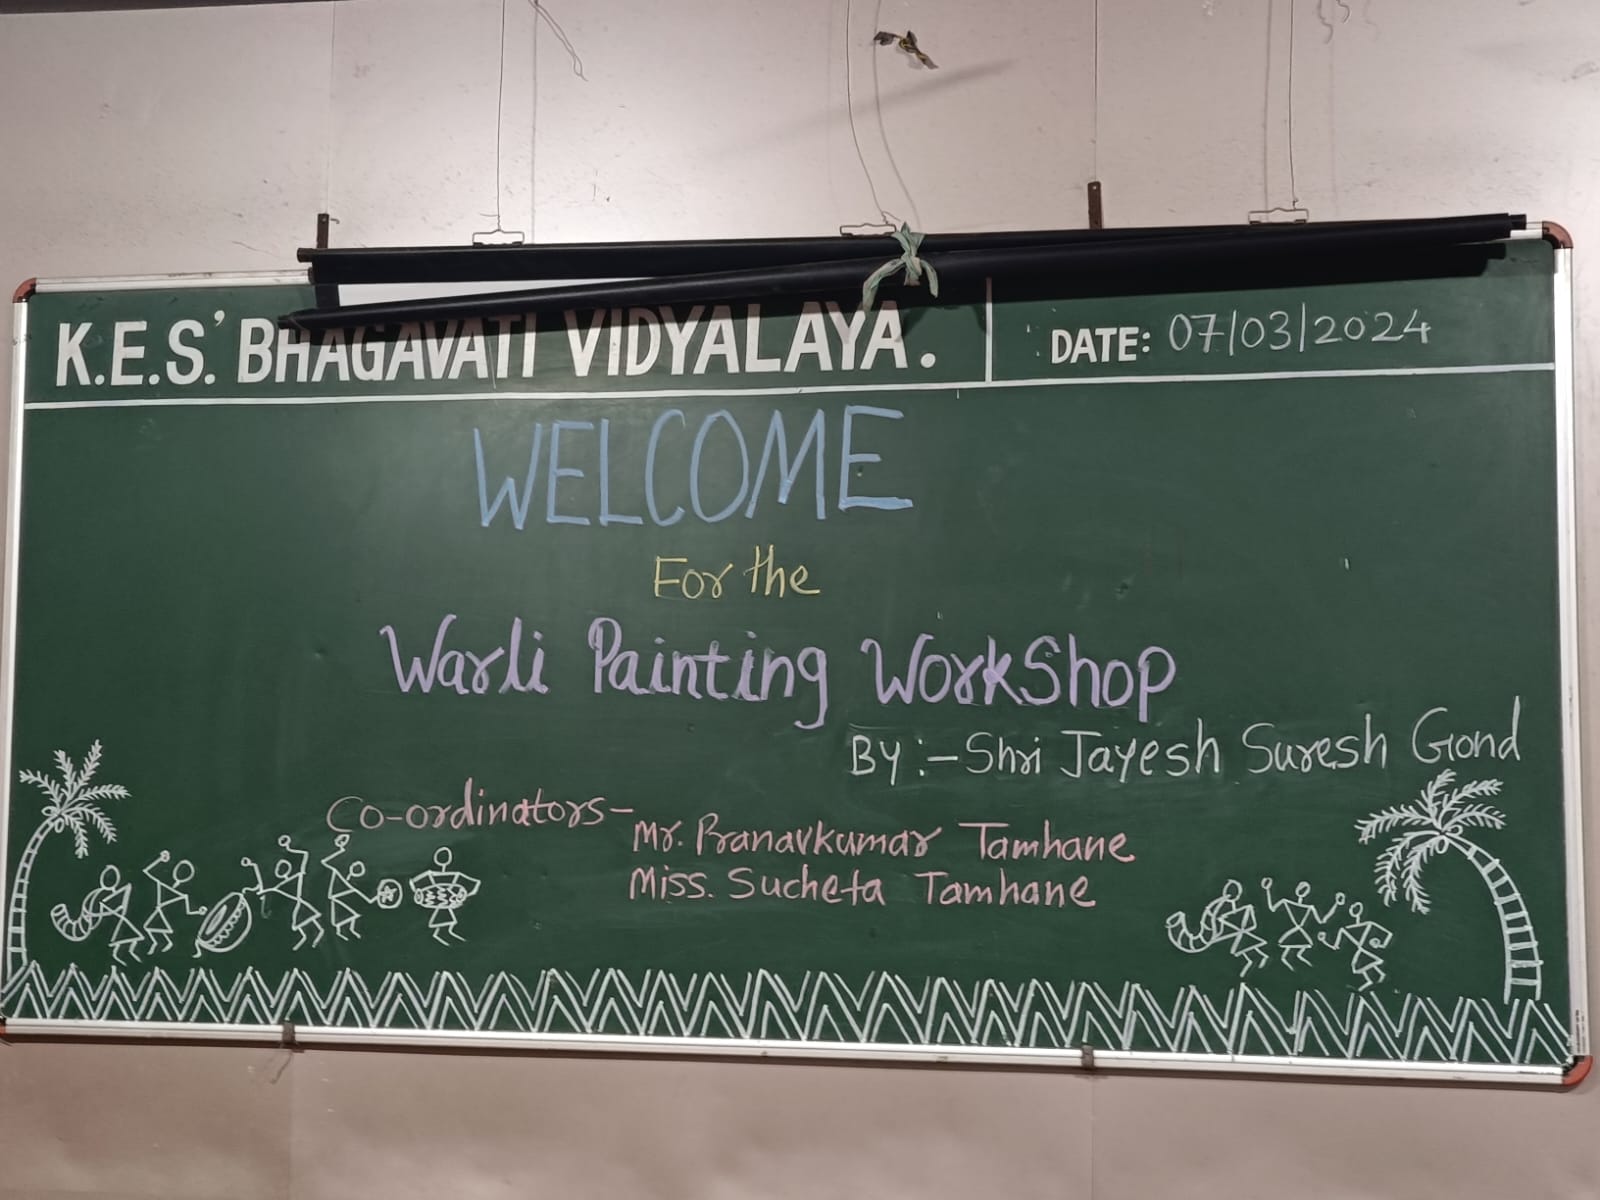 K.E.S.' BHAGAVATI VIDYALAYA.
DATE: 07/03/2024
WELCOME
For the
Warli Painting WorkShop
By :- Shri Jayesh Suresh Gond
Co-ordinators-
Mr. Pranavkumar Tamhane
Miss. Sucheta Tamhane